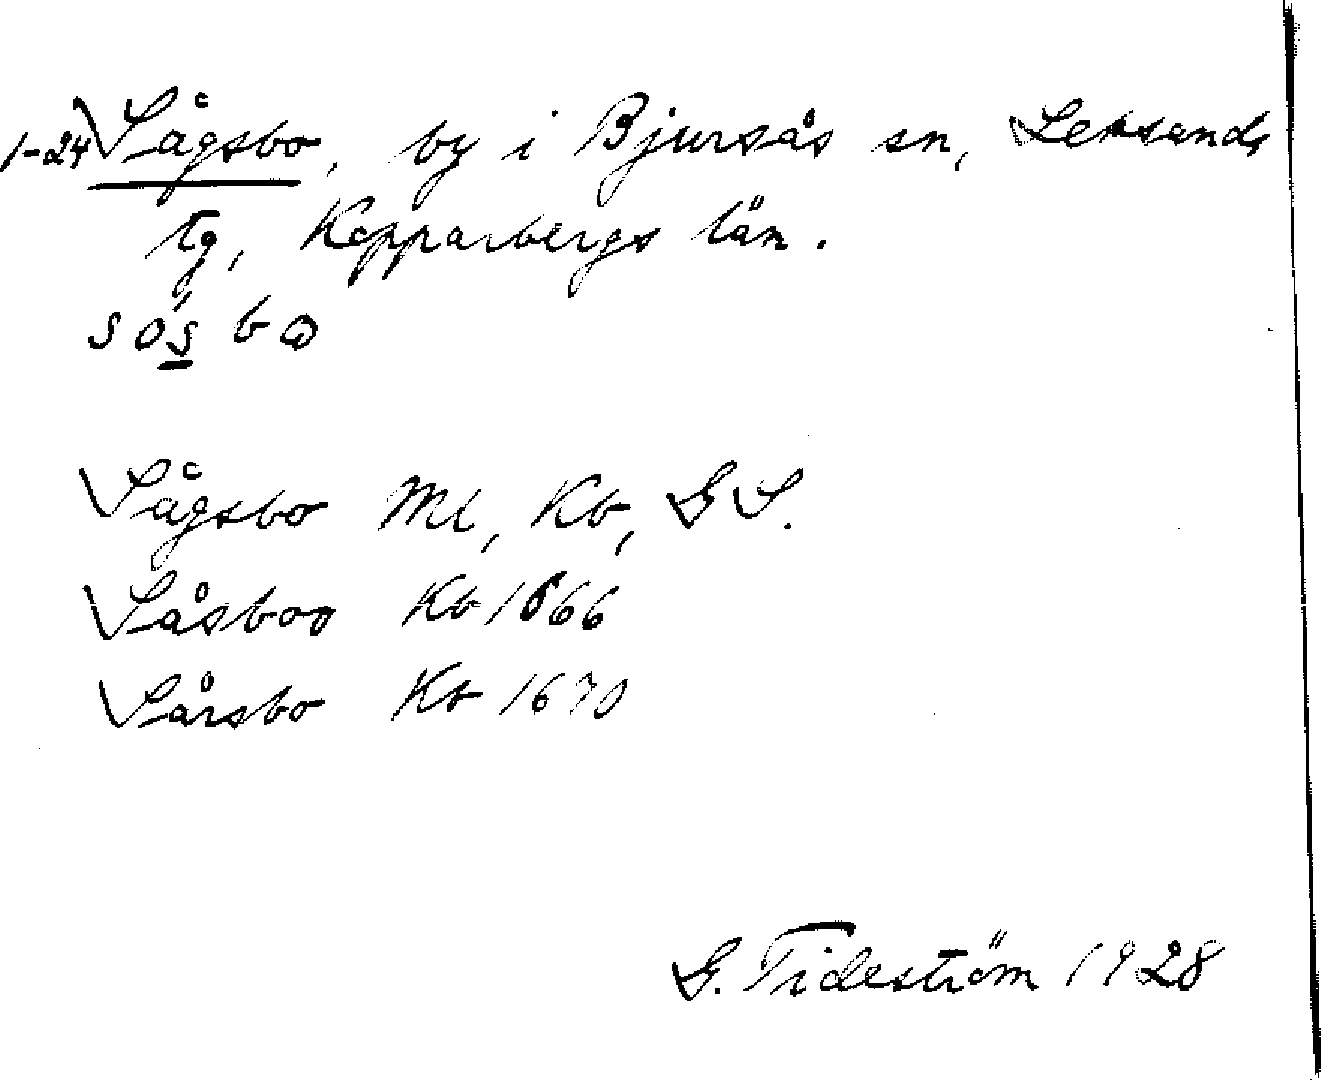 1-24 Sågsbo, by i Bjursås sn, Leksands
tg, Kopparbergs län.
Sågsbo Ml, Kb, GS.
Såsboo Kb 1666
Sårsbo Kb 1670
G. Tideström 1928